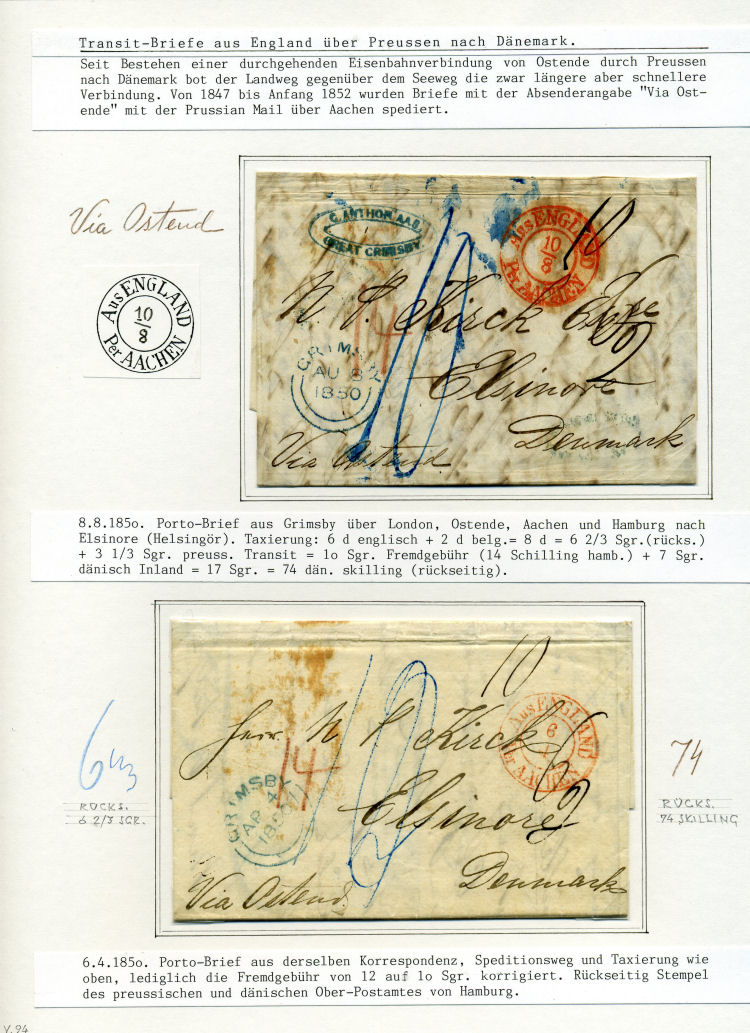 Transit-Briefe aus England über Preussen nach Dänemark.
Seit Bestehen einer durchgehenden Eisenbahnverbindung von Ostende durch Preussen
nach Dänemark bot der Landweg gegenüber dem Seeweg die zwar längere aber schnellere
Verbindung. Von 1847 bis Anfang 1852 wurden Briefe mit der Absenderangabe "Via Ost-
ende" mit der Prussian Mail über Aachen spediert.
Via Ostend
Aus ENGLAND
10
8
Per AACHEN
GREAT GRIMSBY
Aus ENGLAND
10
8
Per AACHEN
10
N. S. Kirck
14
GRIMSBY
AU 8
1850
Elsinore
Denmark
Via Ostend
8.8.185o. Porto-Brief aus Grimsby über London, Ostende, Aachen und Hamburg nach
Elsinore (Helsingör). Taxierung: 6 d englisch + 2 d belg.= 8 d = 6 2/3 Sgr.(rücks.)
+ 3 1/3 Sgr. preuss. Transit = 1o Sgr. Fremdgebühr (14 Schilling hamb.) + 7 Sgr.
dänisch Inland = 17 Sgr. = 74 dän. skilling (rückseitig).
10
Herr N S Kirck
Aus ENGLAND
6
Per AACHEN
14
GRIMSBY
AP 4
1850
Elsinore
Denmark
Via Ostend.
6 2/3
RÜCKS.
6 2/3 SGR.
74
RÜCKS.
74 SKILLING
6.4.185o. Porto-Brief aus derselben Korrespondenz, Speditionsweg und Taxierung wie
oben, lediglich die Fremdgebühr von 12 auf 1o Sgr. korrigiert. Rückseitig Stempel
des preussischen und dänischen Ober-Postamtes von Hamburg.
V.94